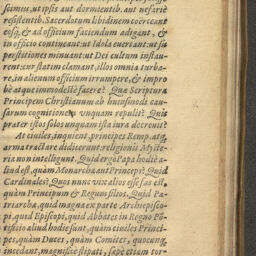 scimeu, ut ipsis aut dormientib. aut nefariè
resistentib. Sacerdotum libidinem coërceant
eosq́, & ad officium faciendum adigant, &
in officio contineant: ut Idola euertant: ut su
perstitiones minuant: ut Dei cultum instau-
rent: cur statim clamant, illos omnia turba-
re, in alienum officium irrumpere, & impro
bè atque immodestè facere? Qua Scriptura
Principem Christianum ab huiusmodi cau-
sarum cognitione vnquam repulit? Quis
præter istos solos unquam ista iura decreuit?
At ciuiles, inquient, principes Remp. aut
arma tractare didicerunt: religionis Myste-
ria non intelligunt. Quid ergò Papa hodie a-
liud est, quàm Monarcha aut Princeps? Quid
Cardinales? Quos nunc vix alios esse fas est,
quàm Principum & Regum filios. Quid Pa-
triarchæ, quid magna ex parte Archiepisco-
pi, quid Episcopi, quid Abbates in Regno Põ-
tificio aliud hodie sunt, quàm ciuiles Princi-
pes, quàm Duces, quàm Comites, quocunq́;
incedant, magnificè stipati, sæpè etiam tor-